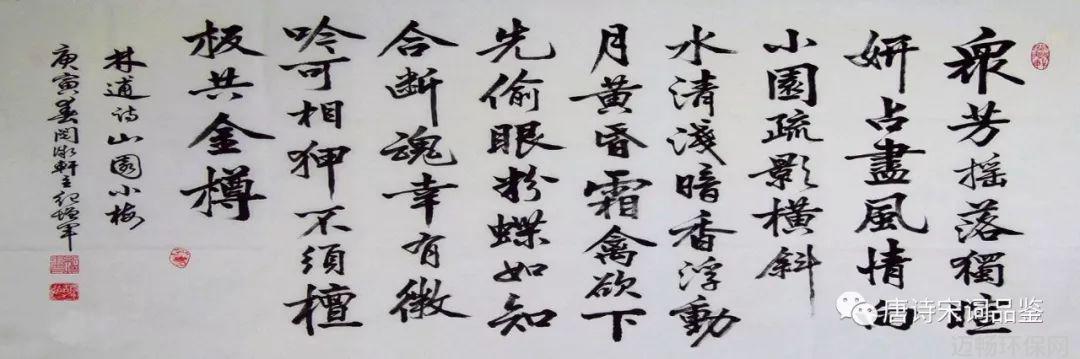 衆芳摇落獨暄
妍占盡風情向
小園疏影橫斜
水清淺暗香浮動
月黄昏霜禽欲下
先偷眼粉蝶如知
合断魂幸有微
吟可相狎不須檀
板共金樽
林逋诗山園小梅
庚寅春
唐诗宋词品鉴
迈畅环保网